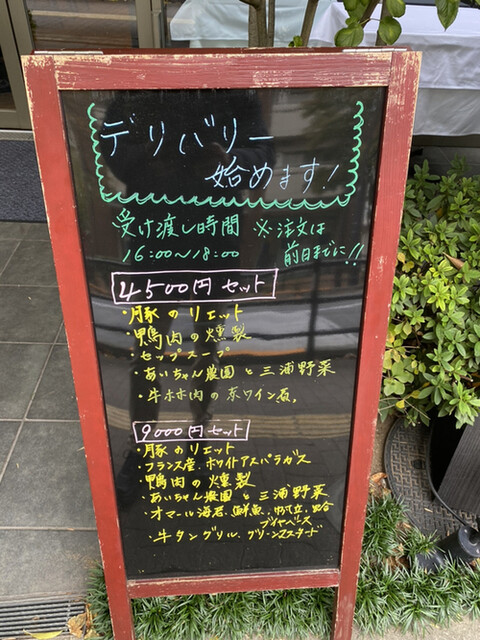 デリバリー
始めます!
受け渡し時間 ※注文は
16:00〜18:00 前日までに!!
4500円セット
・豚のリエット
・鴨肉の燻製
・セップスープ
・あいちゃん農園と三浦野菜
・牛ホホ肉の赤ワイン煮
9000円セット
・豚のリエット
・フランス産、ホワイトアスパラガス
鴨肉の燻製
・あいちゃん農園と三浦野菜
・オマール海老、鮮魚、帆立、蛤
ブイヤベース
・牛タングリル、グリーンマスタード